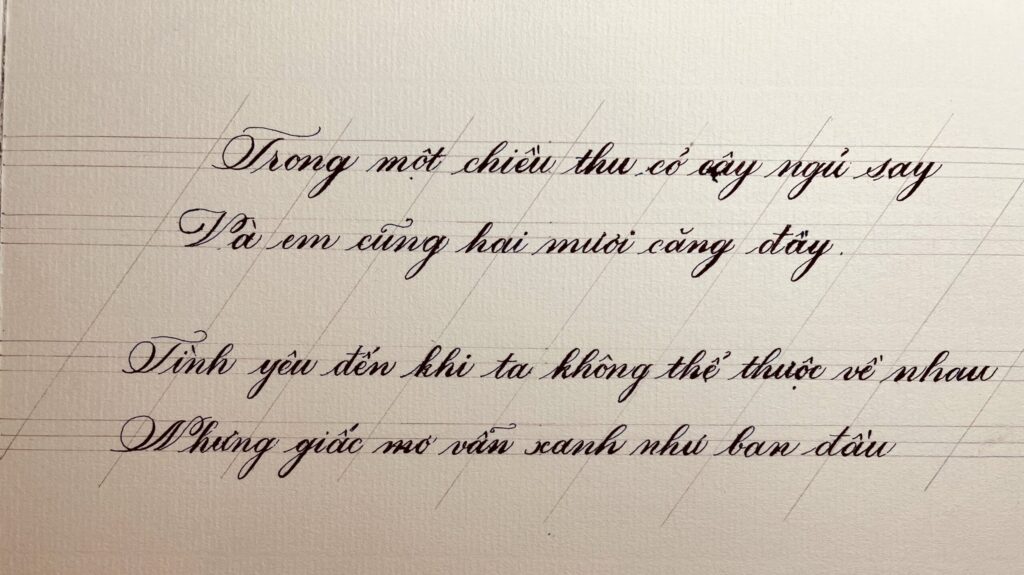 Trong một chiều thu cỏ cậy ngủ say
Và em cũng hai mươi căng đầy.
Tình yêu đến khi ta không thể thuộc về nhau
Nhưng giấc mơ vẫn xanh như ban đầu